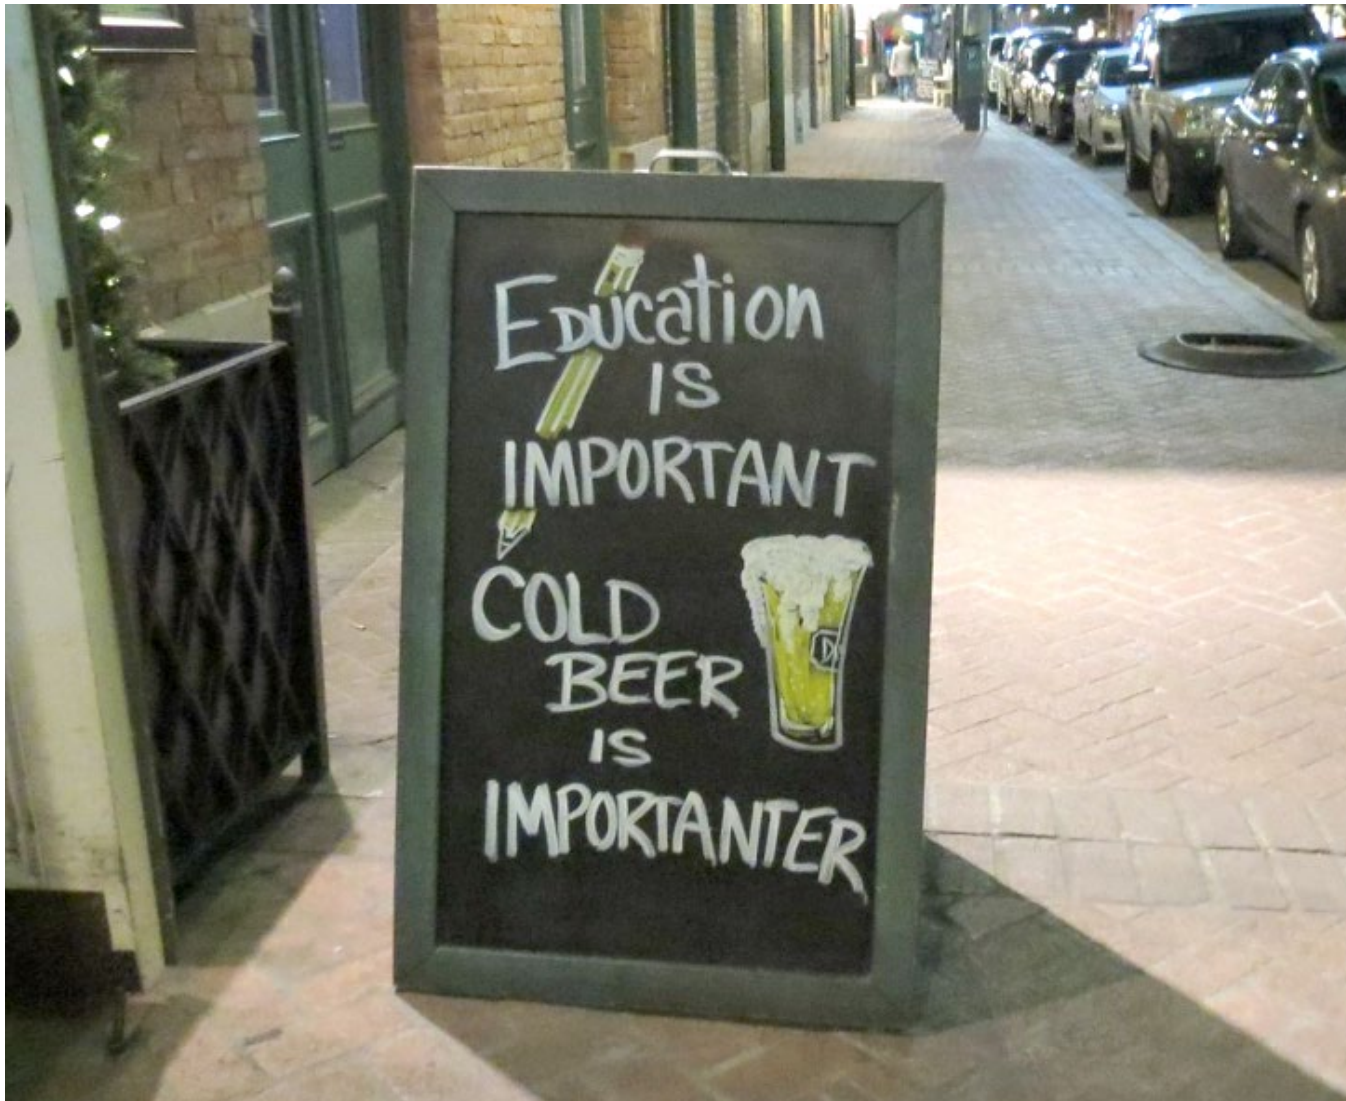 Education
IS
IMPORTANT
COLD
BEER
IS
IMPORTANTER